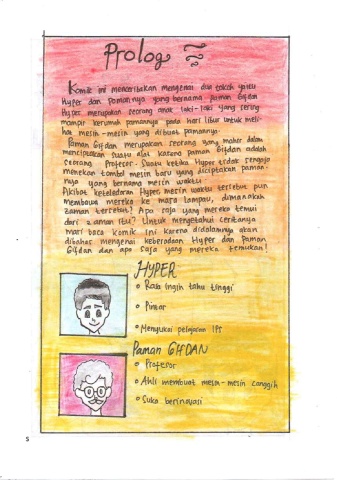 Prolog
Komik ini menceritakan mengenai dua tokoh yaitu
Hyper dan pamannya yang bernama paman Gifdan
Hyper merupakan seorang anak laki-laki yang sering
mampir kerumah pamannya pada hari libur untuk meli-
hat mesin-mesin yang dibuat pamannya.
Paman Gifdan merupakan seorang yang mahir dalam
menciptakan suatu alat karena paman Gifdan adalah
seorang Profesor. Suatu ketika Hyper tidak sengaja
menekan tombol mesin baru yang diciptakan paman-
nya yang bernama mesin waktu
Akibat keteledoran Hyper, mesin waktu tersebut pun
membawa mereka ke masa lampau, dimanakah
zaman tersebut? Apa saja yang mereka temui
dari zaman itu? Untuk mengetahui ceritanya
mari baca komik ini karena didalamnya akan
dibahas mengenai keberadaan Hyper dan Paman
Gifdan dan apa saja yang mereka temukan!
HYPER
Rasa ingin tahu tinggi
Pintar
Menyukai pelajaran IPS
Paman GIFDAN
Profesor
Ahli membuat mesin-mesin canggih
Suka berinovasi
5